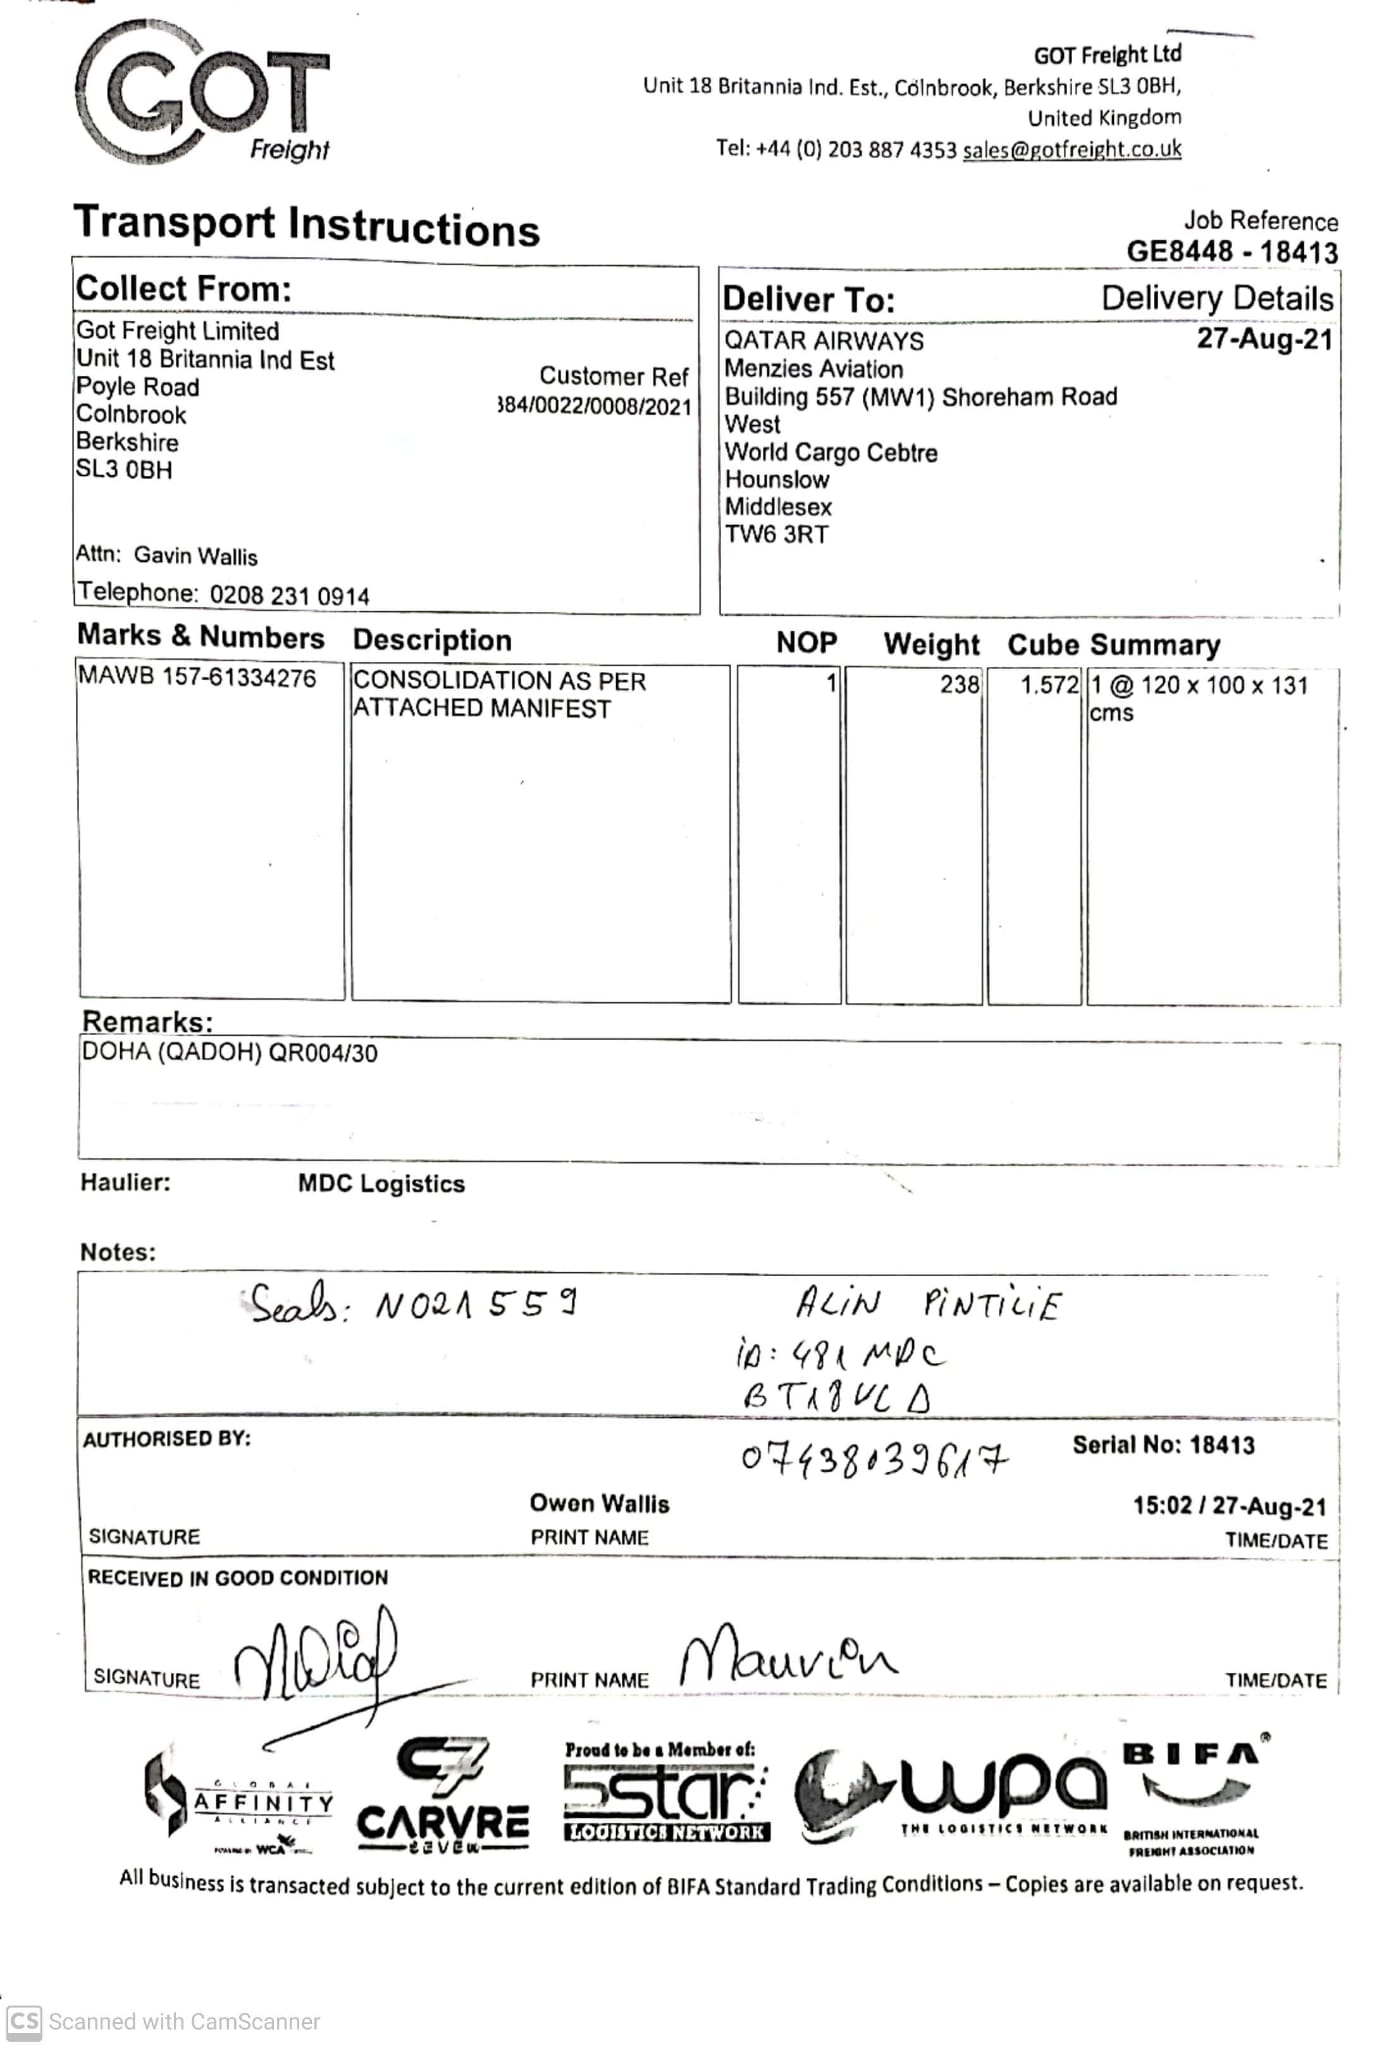 GOT
Freight
GOT Freight Ltd
Unit 18 Britannia Ind. Est., Colnbrook, Berkshire SL3 0BH,
United Kingdom
Tel: +44 (0) 203 887 4353 sales@gotfreight.co.uk
Transport Instructions
Job Reference
GE8448 - 18413
Collect From:
Got Freight Limited
Unit 18 Britannia Ind Est
Poyle Road
Colnbrook
Berkshire
SL3 0BH
Customer Ref
384/0022/0008/2021
Attn: Gavin Wallis
Telephone: 0208 231 0914
Deliver To: Delivery Details
QATAR AIRWAYS 27-Aug-21
Menzies Aviation
Building 557 (MW1) Shoreham Road
West
World Cargo Cebtre
Hounslow
Middlesex
TW6 3RT
Marks & Numbers Description NOP Weight Cube Summary
MAWB 157-61334276 CONSOLIDATION AS PER 1 238 1.572 1 @ 120 x 100 x 131
ATTACHED MANIFEST cms
Remarks:
DOHA (QADOH) QR004/30
Haulier: MDC Logistics
Notes:
Seals: N021559 ALIN PINTILIE
ID: 481 MDC
BT18VLD
AUTHORISED BY:
07438039617
Serial No: 18413
Owen Wallis 15:02 / 27-Aug-21
SIGNATURE PRINT NAME TIME/DATE
RECEIVED IN GOOD CONDITION
SIGNATURE PRINT NAME TIME/DATE
GLOBAL
AFFINITY
ALLIANCE
POWERED BY WCA
C7
CARVRE
SEVEN
Proud to be a Member of:
5star
LOGISTICS NETWORK
wpa
THE LOGISTICS NETWORK
BIFA®
BRITISH INTERNATIONAL
FREIGHT ASSOCIATION
All business is transacted subject to the current edition of BIFA Standard Trading Conditions – Copies are available on request.
CS Scanned with CamScanner